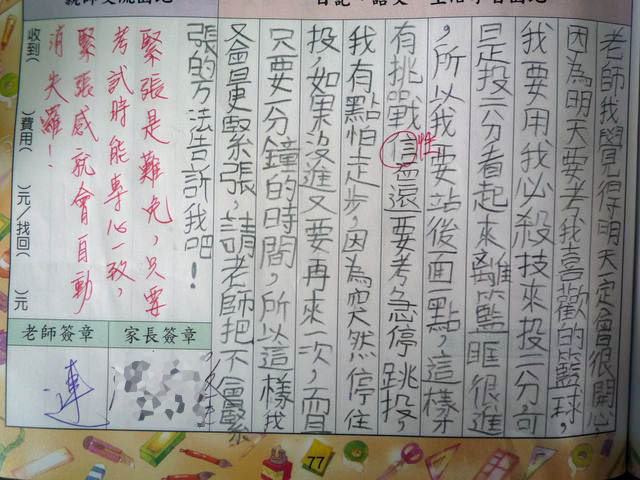 老師我覺得明天一定會很開心
因為明天要考我喜歡的籃球，
我要用我必殺技來投六分，可
是投六分看起來離籃眶很進
，所以我要站後面一點，這樣
有挑戰信還要考急停跳投，
性
我有點怕走步，因為突然停住
投，如果沒進又要再來一次，而且
只要一分鐘的時間，所以這樣我
又會更緊張，請老師把不會緊
張的方法告訴我吧！
緊張是難免，只要
考試時能專心一致，
緊張感就會自動
消失囉！
收到（　）費用（　）元/找回（　）元
家長簽章
老師簽章
連
77